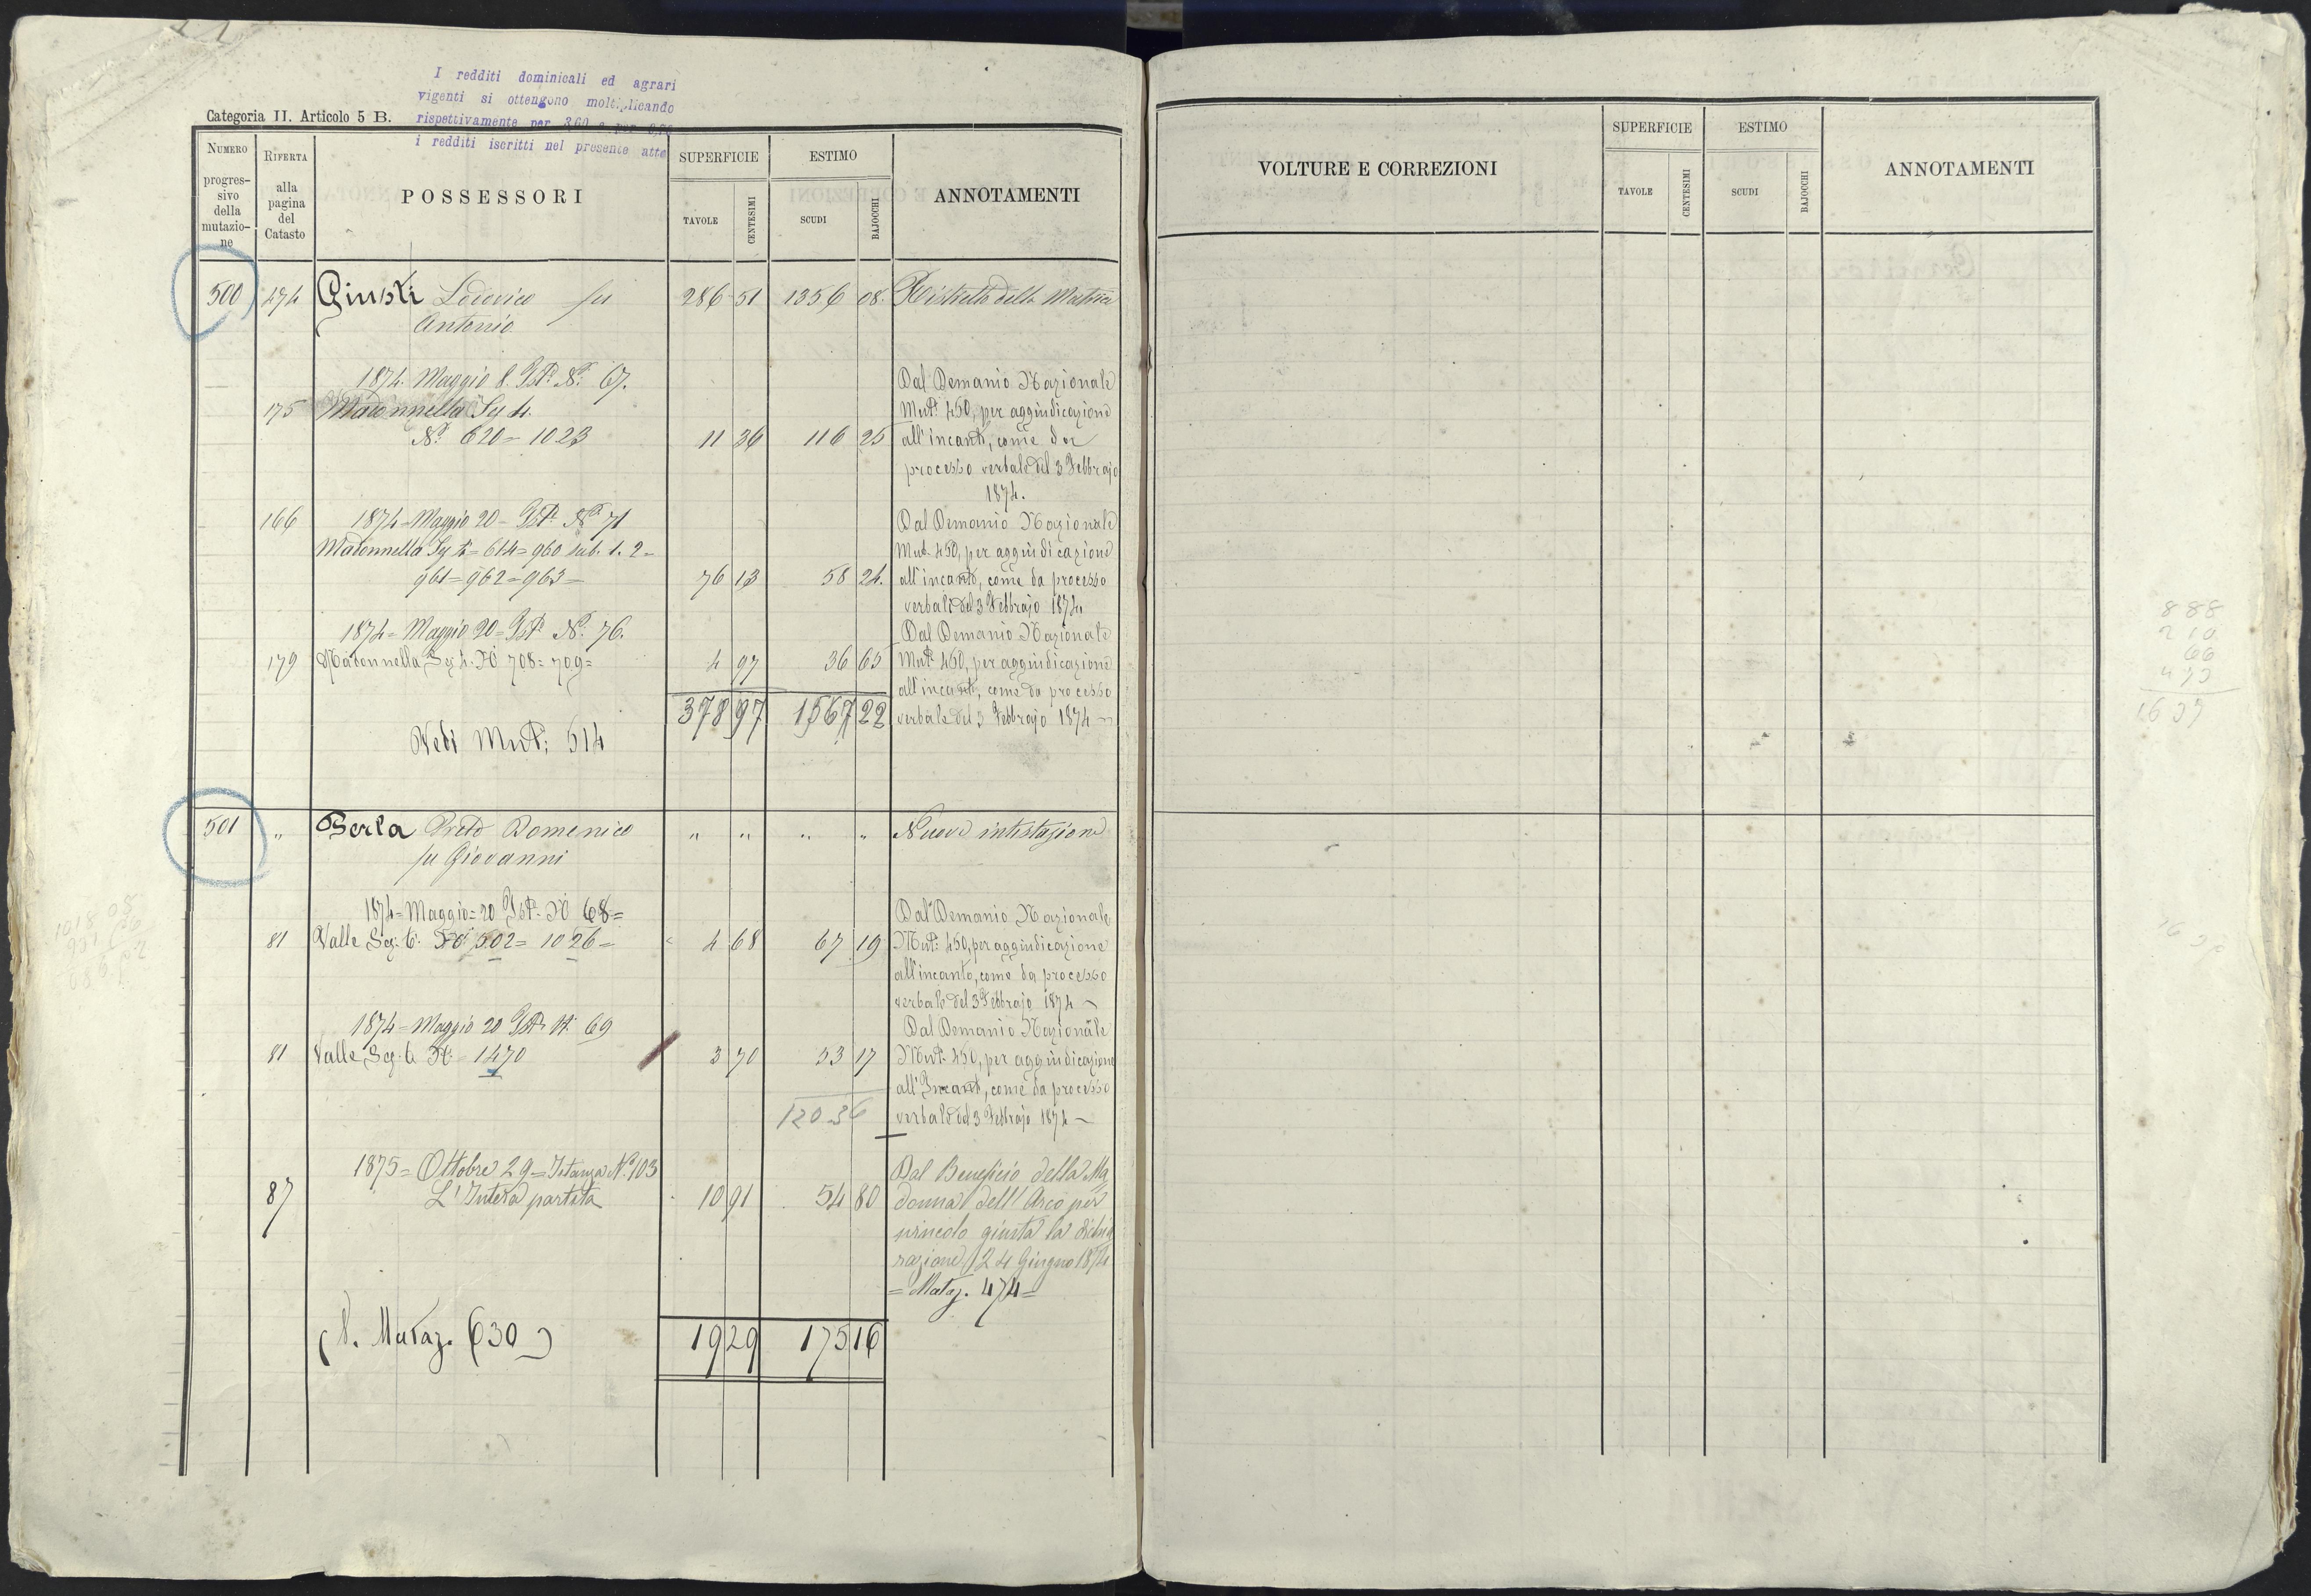 I redditi dominicali ed agrari
vigenti si ottengono moltiplicando
rispettivamente per 3,60 e per
i redditi iscritti nel presente atto
Categoria II. Articolo 5 B.
NUMERO progressivo della mutazione
RIFERTA alla pagina del Catasto
POSSESSORI
SUPERFICIE
TAVOLE
CENTESIMI
ESTIMO
SCUDI
BAJOCCHI
ANNOTAMENTI
500 474 Giusti Lodovico fu 286 51 1356 08 Ristretto della Matrice
Antonio
1874. Maggio 8. Ist. N. 67. Dal Demanio Nazionale
175 Madonnella Sez 4. Mut. 450, per aggiudicazione
N. 620 = 1023 11 36 116 25 all'incanto, come da
processo verbale del 3 Febbrajo
1874.
166 1874 = Maggio 20 = Ist. N. 71 Dal Demanio Nazionale
Madonnella Sez 4 = 614 = 960 sub. 1. 2 = Mut. 450, per aggiudicazione
961 = 962 = 963 = 76 13 58 24 all'incanto, come da processo
verbale del 3 Febbrajo 1874
1874 = Maggio 20 = Ist. N. 76. Dal Demanio Nazionale
179 Madonnella Sez 4. N. 708 = 709 = 4 97 36 65 Mut. 450, per aggiudicazione
all'incanto, come da processo
378 97 1567 22 verbale del 3 Febbrajo 1874
Vedi Mut. 514
501 " Berla Prete Domenico " " " " Nuova intestazione
fu Giovanni
1874 = Maggio = 20 Ist. N. 68 = Dal Demanio Nazionale
81 Valle Sez. 6. N. 502 = 1026 = 4 68 67 19 Mut. 450, per aggiudicazione
all'incanto, come da processo
verbale del 3 Febbrajo 1874
1874 = Maggio 20 Ist. N. 69 Dal Demanio Nazionale
81 Valle Sez. 6 N. = 1470 3 70 53 17 Mut. 450, per aggiudicazione
all'Incanto, come da processo
120 36 verbale del 3 Febbrajo 1874
1875 = Ottobre 29 = Istanza N. 103 Dal Beneficio della Ma
87 L'Intera partita 10 91 54 80 donna dell'Arco per
svincolo giusta la dichia
razione 24 Giugno 1874
= Mutaz. 474 =
(V. Mutaz. 630) 19 29 175 16
VOLTURE E CORREZIONI
SUPERFICIE
TAVOLE
CENTESIMI
ESTIMO
SCUDI
BAJOCCHI
ANNOTAMENTI
888
210
66